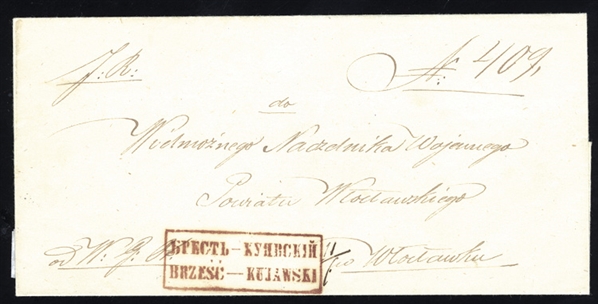 J. R. N. 409,
do
Wielmożnego Naczelnika Wojennego
Powiatu Włocławskiego
od W. w Włocławku
БРЕСТЬ—КУЯВСКІЙ
BRZEŚĆ—KUJAWSKI